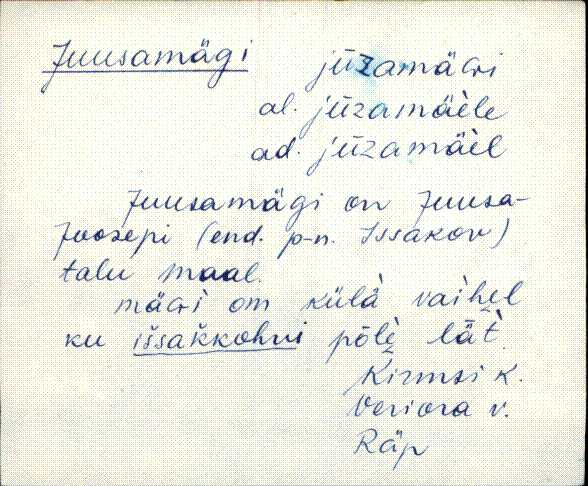 Juusamägi jūzamäɢi
al. jūzamäèle
ad. jūzamäèl
Juusamägi on Juusa-
Joosepi (end. p-n. Issakov)
talu maal.
mäɢi om külä vaihel
ku iššakkohvi põlè lät.
Kirmsi k.
Veriora v.
Räp